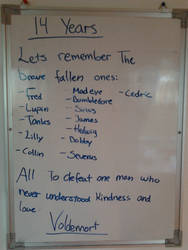 14 Years
Lets remember The
brave fallen ones:
- Fred - Mad eye - Cedric
- Lupin - Dumbledore
- Tonks - Sirius
- Lilly - James
- Collin - Hedwig
- Dobby
- Severus
All To defeat one man who
never understood kindness and
love
Voldemort